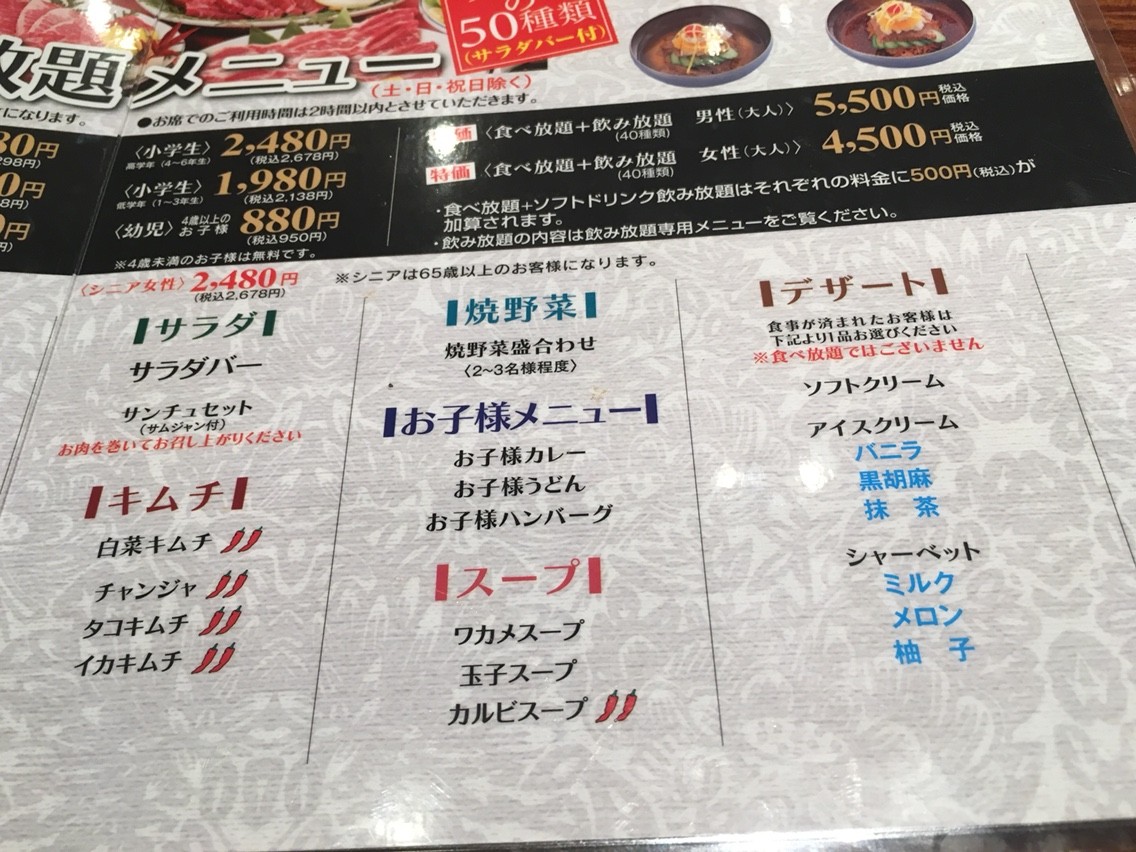 の
50種類
(サラダバー付)
放題メニュー
(土・日・祝日除く)
になります。
●お席でのご利用時間は2時間以内とさせていただきます。
80円
298円)
0円
円)
0円
円)
〈小学生〉
高学年（4～6年生）
2,480円
(税込2,678円)
〈小学生〉
低学年（1～3年生）
1,980円
(税込2,138円)
〈幼児〉
4歳以上の
お子様
880円
(税込950円)
※4歳未満のお子様は無料です。
価
〈食べ放題＋飲み放題
(40種類)
男性(大人)〉
5,500円
税込
価格
特価
〈食べ放題＋飲み放題
(40種類)
女性(大人)〉
4,500円
税込
価格
・食べ放題+ソフトドリンク飲み放題はそれぞれの料金に500円(税込)が
加算されます。
・飲み放題の内容は飲み放題専用メニューをご覧ください。
〈シニア女性〉2,480円
(税込2,678円)
※シニアは65歳以上のお客様になります。
サラダ
サラダバー
サンチュセット
(サムジャン付)
お肉を巻いてお召し上がりください
キムチ
白菜キムチ
チャンジャ
タコキムチ
イカキムチ
焼野菜
焼野菜盛合わせ
〈2～3名様程度〉
お子様メニュー
お子様カレー
お子様うどん
お子様ハンバーグ
スープ
ワカメスープ
玉子スープ
カルビスープ
デザート
食事が済まれたお客様は
下記より1品お選びください
※食べ放題ではございません
ソフトクリーム
アイスクリーム
バニラ
黒胡麻
抹　茶
シャーベット
ミルク
メロン
柚　子